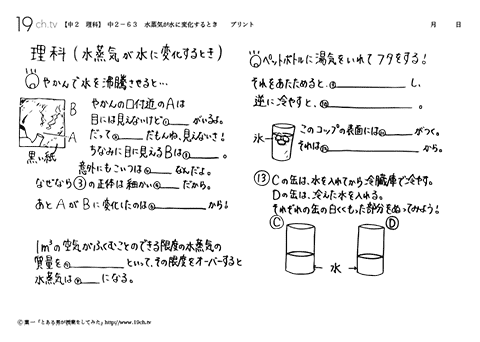 19ch.tv 【中2 理科】 中2-63 水蒸気が水に変化するとき プリント 月 日
理科 (水蒸気が水に変化するとき)
やかんで水を沸騰させると…
B
A
黒い紙
やかんの口付近のAは
目には見えないけど①______がいるよ。
だって②______だもんね、見えないさ!
ちなみに目に見えるBは③______。
意外にもこいつは④______なんだよ。
なぜなら③の正体は細かい⑤______だから。
あとAがBに変化したのは⑥______から!
1m³の空気がふくむことのできる限度の水蒸気の
質量を⑦______といって、その限度をオーバーすると
水蒸気は⑧____になる。
ペットボトルに湯気をいれてフタをする!
それをあたためると、⑨______し、
逆に冷やすと、⑩______。
氷
このコップの表面には⑪______がつく。
それは⑫______から。
⑬ Cの缶は、水を入れてから冷蔵庫で冷やす。
Dの缶は、冷えた水を入れる。
それぞれの缶の白くくもった部分をぬってみよう!
C D
← 水 →
Ⓒ 葉一「とある男が授業をしてみた」http://www.19ch.tv